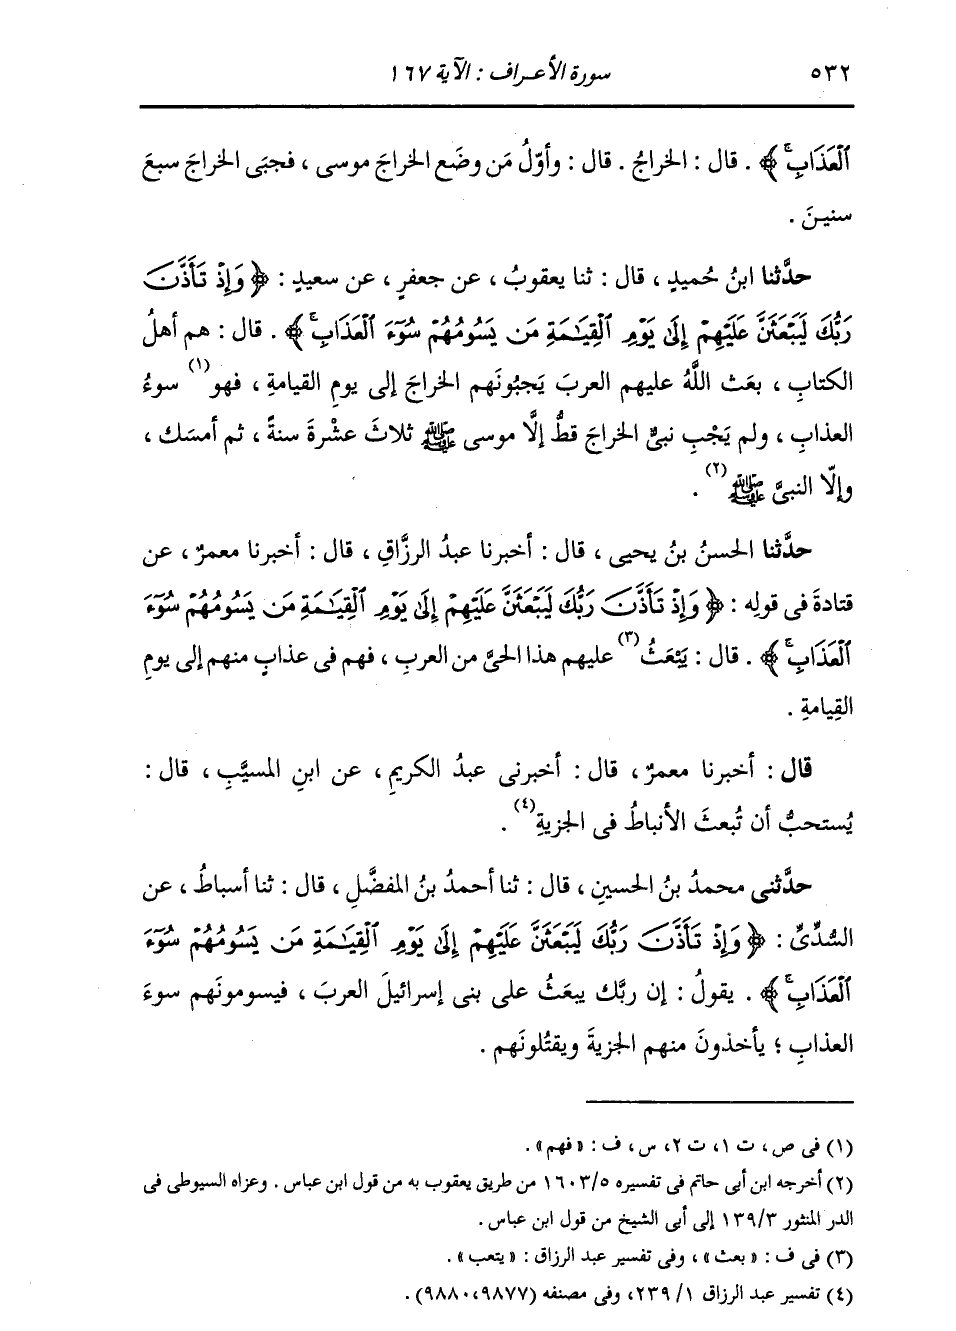 ٥٣٢ سورة الأعراف : الآية ١٦٧
ٱلْعَذَابِۗ ﴾ . قال : الخراجُ . قال : وأوّلُ مَن وضَع الخراجَ موسى ، فجبَى الخراجَ سبعَ
سنينَ .
حدَّثنا ابنُ حُميدٍ ، قال : ثنا يعقوبُ ، عن جعفرٍ ، عن سعيدٍ : ﴿ وَإِذْ تَأَذَّنَ
رَبُّكَ لَيَبْعَثَنَّ عَلَيْهِمْ إِلَىٰ يَوْمِ ٱلْقِيَـٰمَةِ مَن يَسُومُهُمْ سُوٓءَ ٱلْعَذَابِۗ ﴾ . قال : هم أهلُ
الكتابِ ، بعَث اللَّهُ عليهم العربَ يَجبُونَهم الخراجَ إلى يومِ القيامةِ ، فهو(١) سوءُ
العذابِ ، ولم يَجْبِ نبىٌّ الخراجَ قطُّ إلَّا موسى ﷺ ثلاثَ عشْرةَ سنةً ، ثم أمسَك ،
وإلّا النبىَّ ﷺ(٢) .
حدَّثنا الحسنُ بنُ يحيى ، قال : أخبرنا عبدُ الرزَّاقِ ، قال : أخبرنا معمرٌ ، عن
قتادةَ فى قولِه : ﴿ وَإِذْ تَأَذَّنَ رَبُّكَ لَيَبْعَثَنَّ عَلَيْهِمْ إِلَىٰ يَوْمِ ٱلْقِيَـٰمَةِ مَن يَسُومُهُمْ سُوٓءَ
ٱلْعَذَابِۗ ﴾ . قال : يَبْعَثُ(٣) عليهم هذا الحىَّ من العربِ ، فهم فى عذابٍ منهم إلى يومِ
القِيامةِ .
قال : أخبرنا معمرٌ ، قال : أخبرنى عبدُ الكريمِ ، عن ابنِ المسيَّبِ ، قال :
يُستحبُّ أن تُبعثَ الأنباطُ فى الجزيةِ(٤) .
حدَّثنى محمدُ بنُ الحسينِ ، قال : ثنا أحمدُ بنُ المفضَّلِ ، قال : ثنا أسباطُ ، عن
السُّدِّىِّ : ﴿ وَإِذْ تَأَذَّنَ رَبُّكَ لَيَبْعَثَنَّ عَلَيْهِمْ إِلَىٰ يَوْمِ ٱلْقِيَـٰمَةِ مَن يَسُومُهُمْ سُوٓءَ
ٱلْعَذَابِۗ ﴾ . يقولُ : إن ربَّك يبعَثُ على بنى إسرائيلَ العربَ ، فيسومونَهم سوءَ
العذابِ ؛ يأخذونَ منهم الجزيةَ ويقتُلونَهم .
(١) فى ص ، ت ١ ، ت ٢ ، س ، ف : « فهم » .
(٢) أخرجه ابن أبى حاتم فى تفسيره ١٦٠٣/٥ من طريق يعقوب به من قول ابن عباس . وعزاه السيوطى فى
الدر المنثور ١٣٩/٣ إلى أبى الشيخ من قول ابن عباس .
(٣) فى ف : « بعث » ، وفى تفسير عبد الرزاق : « يتعب » .
(٤) تفسير عبد الرزاق ١/ ٢٣٩، وفى مصنفه (٩٨٧٧، ٩٨٨٠) .